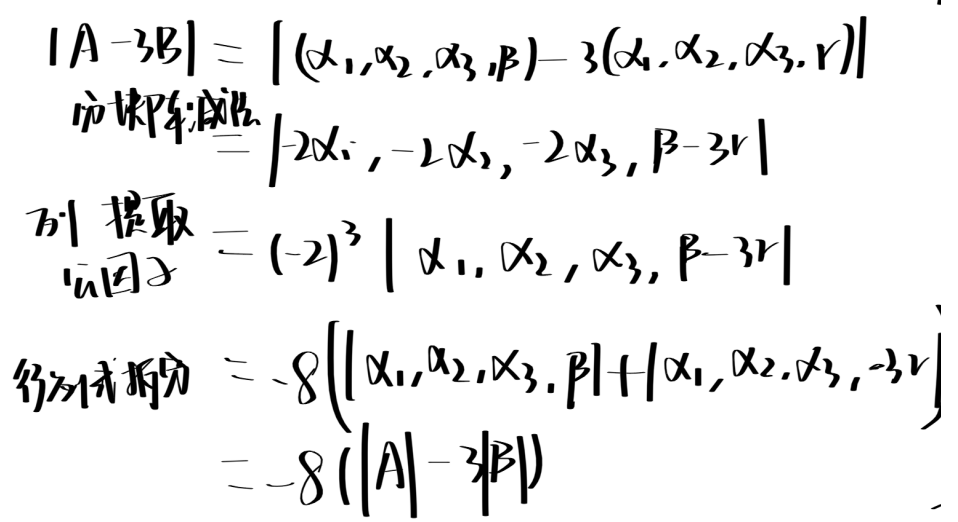 |A-3B| = |(α₁,α₂,α₃,β)-3(α₁,α₂,α₃,γ)|
分块矩阵减法
= |-2α₁,-2α₂,-2α₃,β-3γ|
列提取
公因子
= (-2)³|α₁,α₂,α₃,β-3γ|
行列式拆分 = -8(|α₁,α₂,α₃,β|+|α₁,α₂,α₃,-3γ|)
= -8(|A|-3|B|)